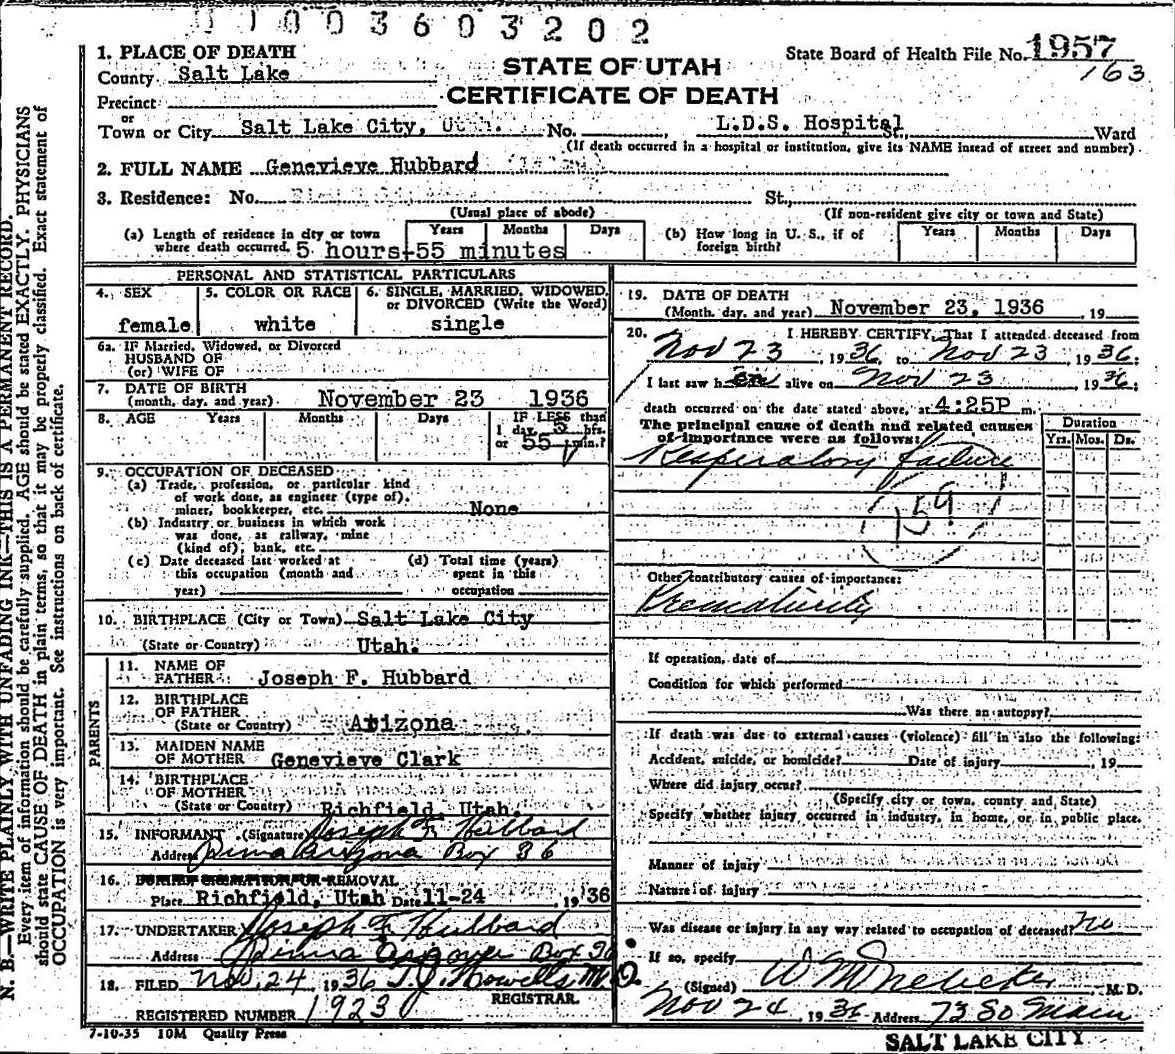 1 0 0 3 6 0 3 2 0 2
1. PLACE OF DEATH
County Salt Lake
STATE OF UTAH
State Board of Health File No. 1957
163
Precinct
CERTIFICATE OF DEATH
or
Town or City Salt Lake City, Utah. No. , L.D.S. Hospital St., Ward
(If death occurred in a hospital or institution, give its NAME instead of street and number)
2. FULL NAME Genevieve Hubbard
3. Residence: No. St.,
(Usual place of abode) (If non-resident give city or town and State)
(a) Length of residence in city or town where death occurred. Years Months Days
5 hours-55 minutes
(b) How long in U. S., if of foreign birth? Years Months Days
PERSONAL AND STATISTICAL PARTICULARS
4. SEX 5. COLOR OR RACE 6. SINGLE, MARRIED, WIDOWED, or DIVORCED (Write the Word)
female white single
6a. IF Married, Widowed, or Divorced
HUSBAND OF
(or) WIFE OF
7. DATE OF BIRTH
(month, day, and year) November 23 1936
8. AGE Years Months Days IF LESS than
1 day, 5 hrs.
or 55 min.?
9. OCCUPATION OF DECEASED
(a) Trade, profession, or particular kind
of work done, as engineer (type of),
miner, bookkeeper, etc. None
(b) Industry or business in which work
was done, as railway, mine
(kind of), bank, etc.
(c) Date deceased last worked at
this occupation (month and
year)
(d) Total time (years)
spent in this
occupation
10. BIRTHPLACE (City or Town) Salt Lake City
(State or Country) Utah.
PARENTS
11. NAME OF
FATHER Joseph F. Hubbard
12. BIRTHPLACE
OF FATHER
(State or Country) Arizona
13. MAIDEN NAME
OF MOTHER Genevieve Clark
14. BIRTHPLACE
OF MOTHER
(State or Country) Richfield, Utah.
15. INFORMANT (Signature) Joseph F. Hubbard
Address Pima Arizona Box 36
16. BURIAL CREMATION OR REMOVAL
Place Richfield, Utah Date 11-24, 1936
17. UNDERTAKER Joseph F. Hubbard
Address Pima Arizona Box 36
18. FILED Nov. 24 1936 T. J. Howells M.D.
REGISTRAR.
REGISTERED NUMBER 1923
7-10-35 10M Quality Press
19. DATE OF DEATH
(Month, day, and year) November 23, 1936, 19
20. I HEREBY CERTIFY, That I attended deceased from
Nov 23, 1936, to Nov 23, 1936;
I last saw her alive on Nov 23, 1936;
death occurred on the date stated above, at 4:25P m.
The principal cause of death and related causes
of importance were as follows:
Duration
Yrs. Mos. Ds.
Respiratory failure
159
Other contributory causes of importance:
Prematurity
If operation, date of
Condition for which performed
Was there an autopsy?
If death was due to external causes (violence) fill in also the following:
Accident, suicide, or homicide? Date of injury , 19
Where did injury occur?
(Specify city or town, county and State)
Specify whether injury occurred in industry, in home, or in public place.
Manner of injury
Nature of injury
Was disease or injury in any way related to occupation of deceased? no
If so, specify
(Signed) W M Nebeker, M. D.
Nov 24, 1936 Address 73 So Main
SALT LAKE CITY
N. B.—WRITE PLAINLY WITH UNFADING INK—THIS IS A PERMANENT RECORD.
Every item of information should be carefully supplied. AGE should be stated EXACTLY. PHYSICIANS
should state CAUSE OF DEATH in plain terms, so that it may be properly classified. Exact statement of
OCCUPATION is very important. See instructions on back of certificate.